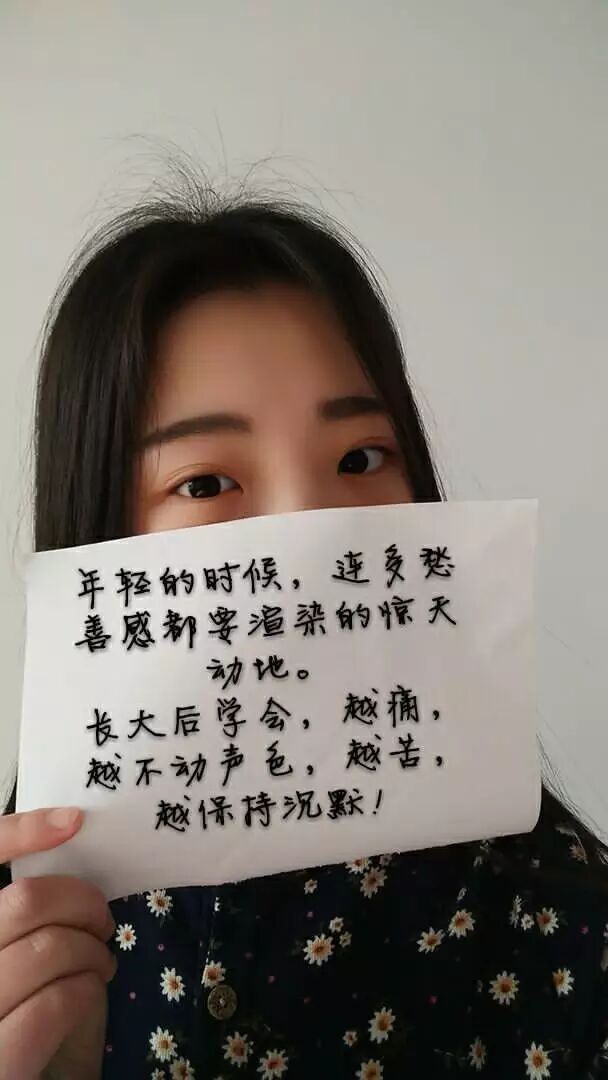 年轻的时候，连多愁
善感都要渲染的惊天
动地。
长大后学会，越痛，
越不动声色，越苦，
越保持沉默！